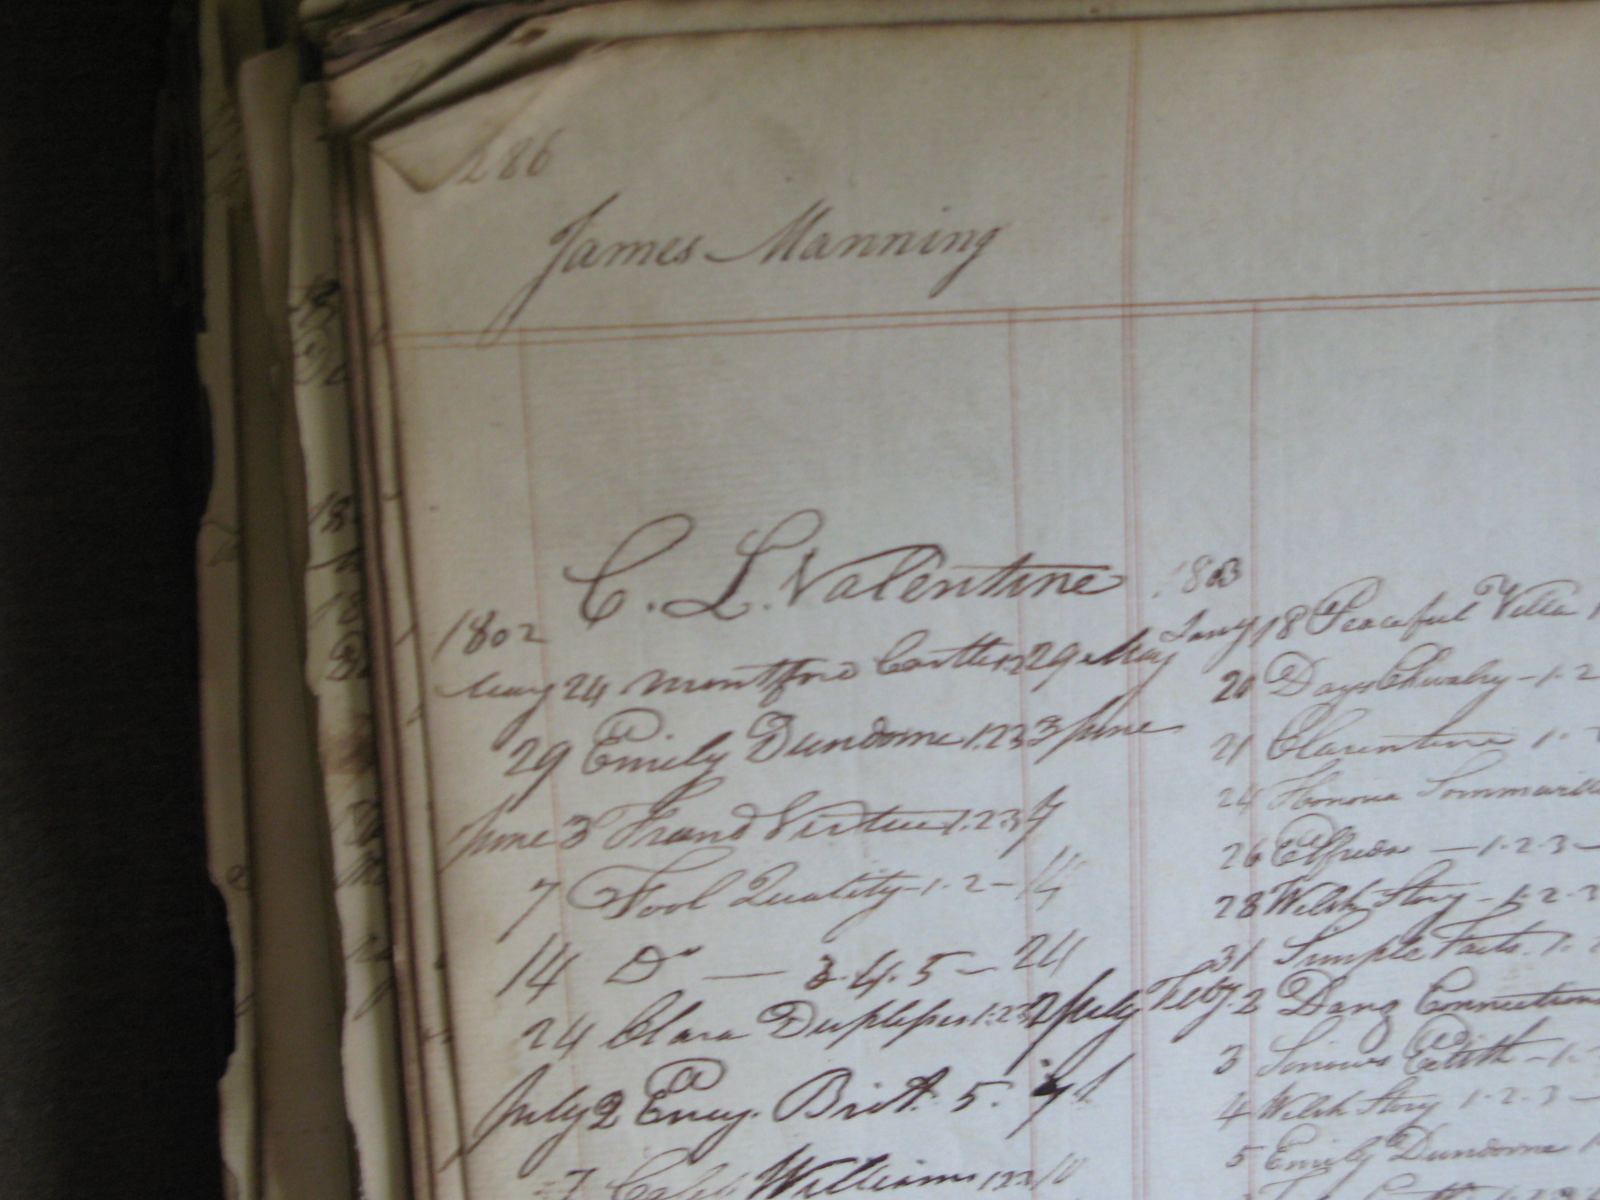 286
James Manning
C. L. Valentine
1802
May 24 Montford Castle 1.2 29 May
29 Emily Dundorne 1.2.3 3 June
June 3 Fraud Virtue 1.2.3 7
7 Fool Quality - 1. 2 - 14
14 Do — 3. 4. 5 - 24
24 Clara Duplessis 1.2.3 2 July
July 2 Ency. Brit. 5. 7
7 Caleb Williams 1 2 3 10
1803
Jany 18 Peaceful Villa 1
20 Days Chivalry - 1. 2
21 Clarentine 1.
24 Honoria Sommerville
26 Elfrida — 1. 2. 3 -
28 Welsh Story - 1. 2. 3
31 Simple Facts. 1.
Feby. 2 Dang Connections
3 Edith - 1.
4 Welsh Story 1. 2. 3 -
5 Emily Dundorne 1